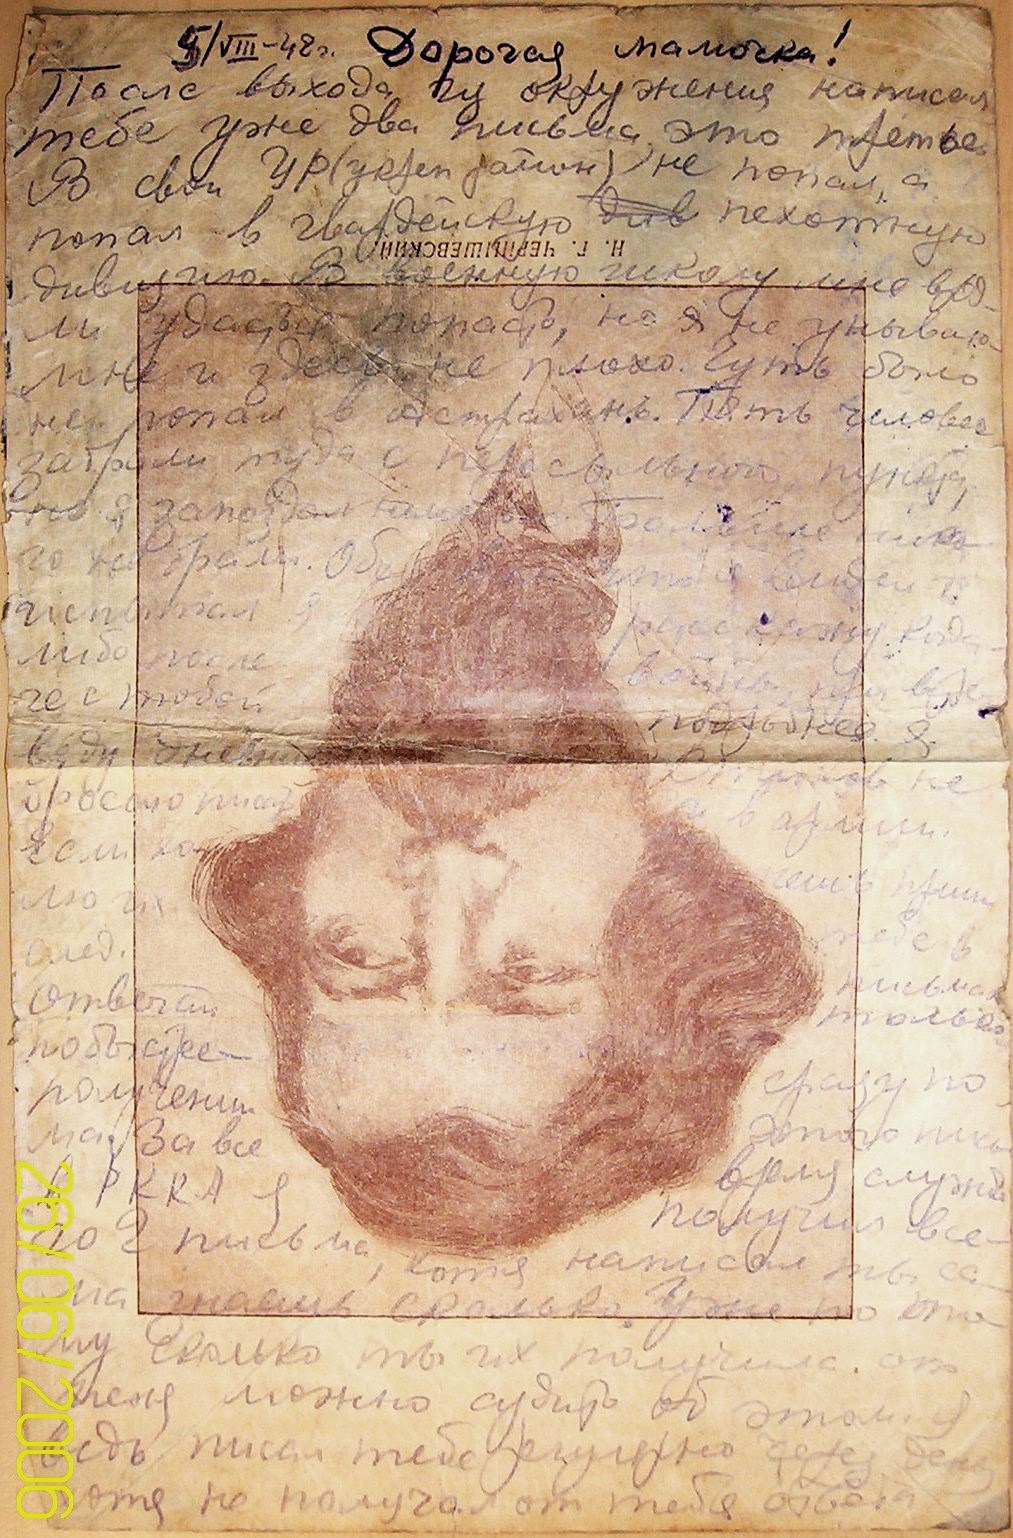 5/VIII-42г. Дорогая мамочка!
После выхода из окружения написал
тебе уже два письма, это третье.
В свой УР (укреп район) не попал, а
попал в гвардейскую див пехотную
Н. Г. ЧЕРНЫШЕВСКИЙ
дивизию. В военную школу мне вряд
ли удастся попасть, но я не унываю
мне и здесь не плохо. Чуть было
не попал в Астрахань. Пять человек
забрали туда с пересыльного пункта,
но я запоздал
го не брали. Обо что я видел и
испытал я расскажу когда-
либо после войны, при встре-
че с тобой подробнее. Я
веду дневник не
бросаю писать и в армии.
Если хочешь приш-
лю их тебе в
след. письмах
Отвечай только
побыстрее сразу по
получении этого пись-
ма. За все время службы
в РККА я получил все-
го 2 письма, хотя написал ты са-
ма знаешь сколько. Уже по это-
му сколько ты их получила от
меня можно судить об этом. Я
ведь писал тебе регулярно через день
хотя не получал от тебя ответа
26/06/2006